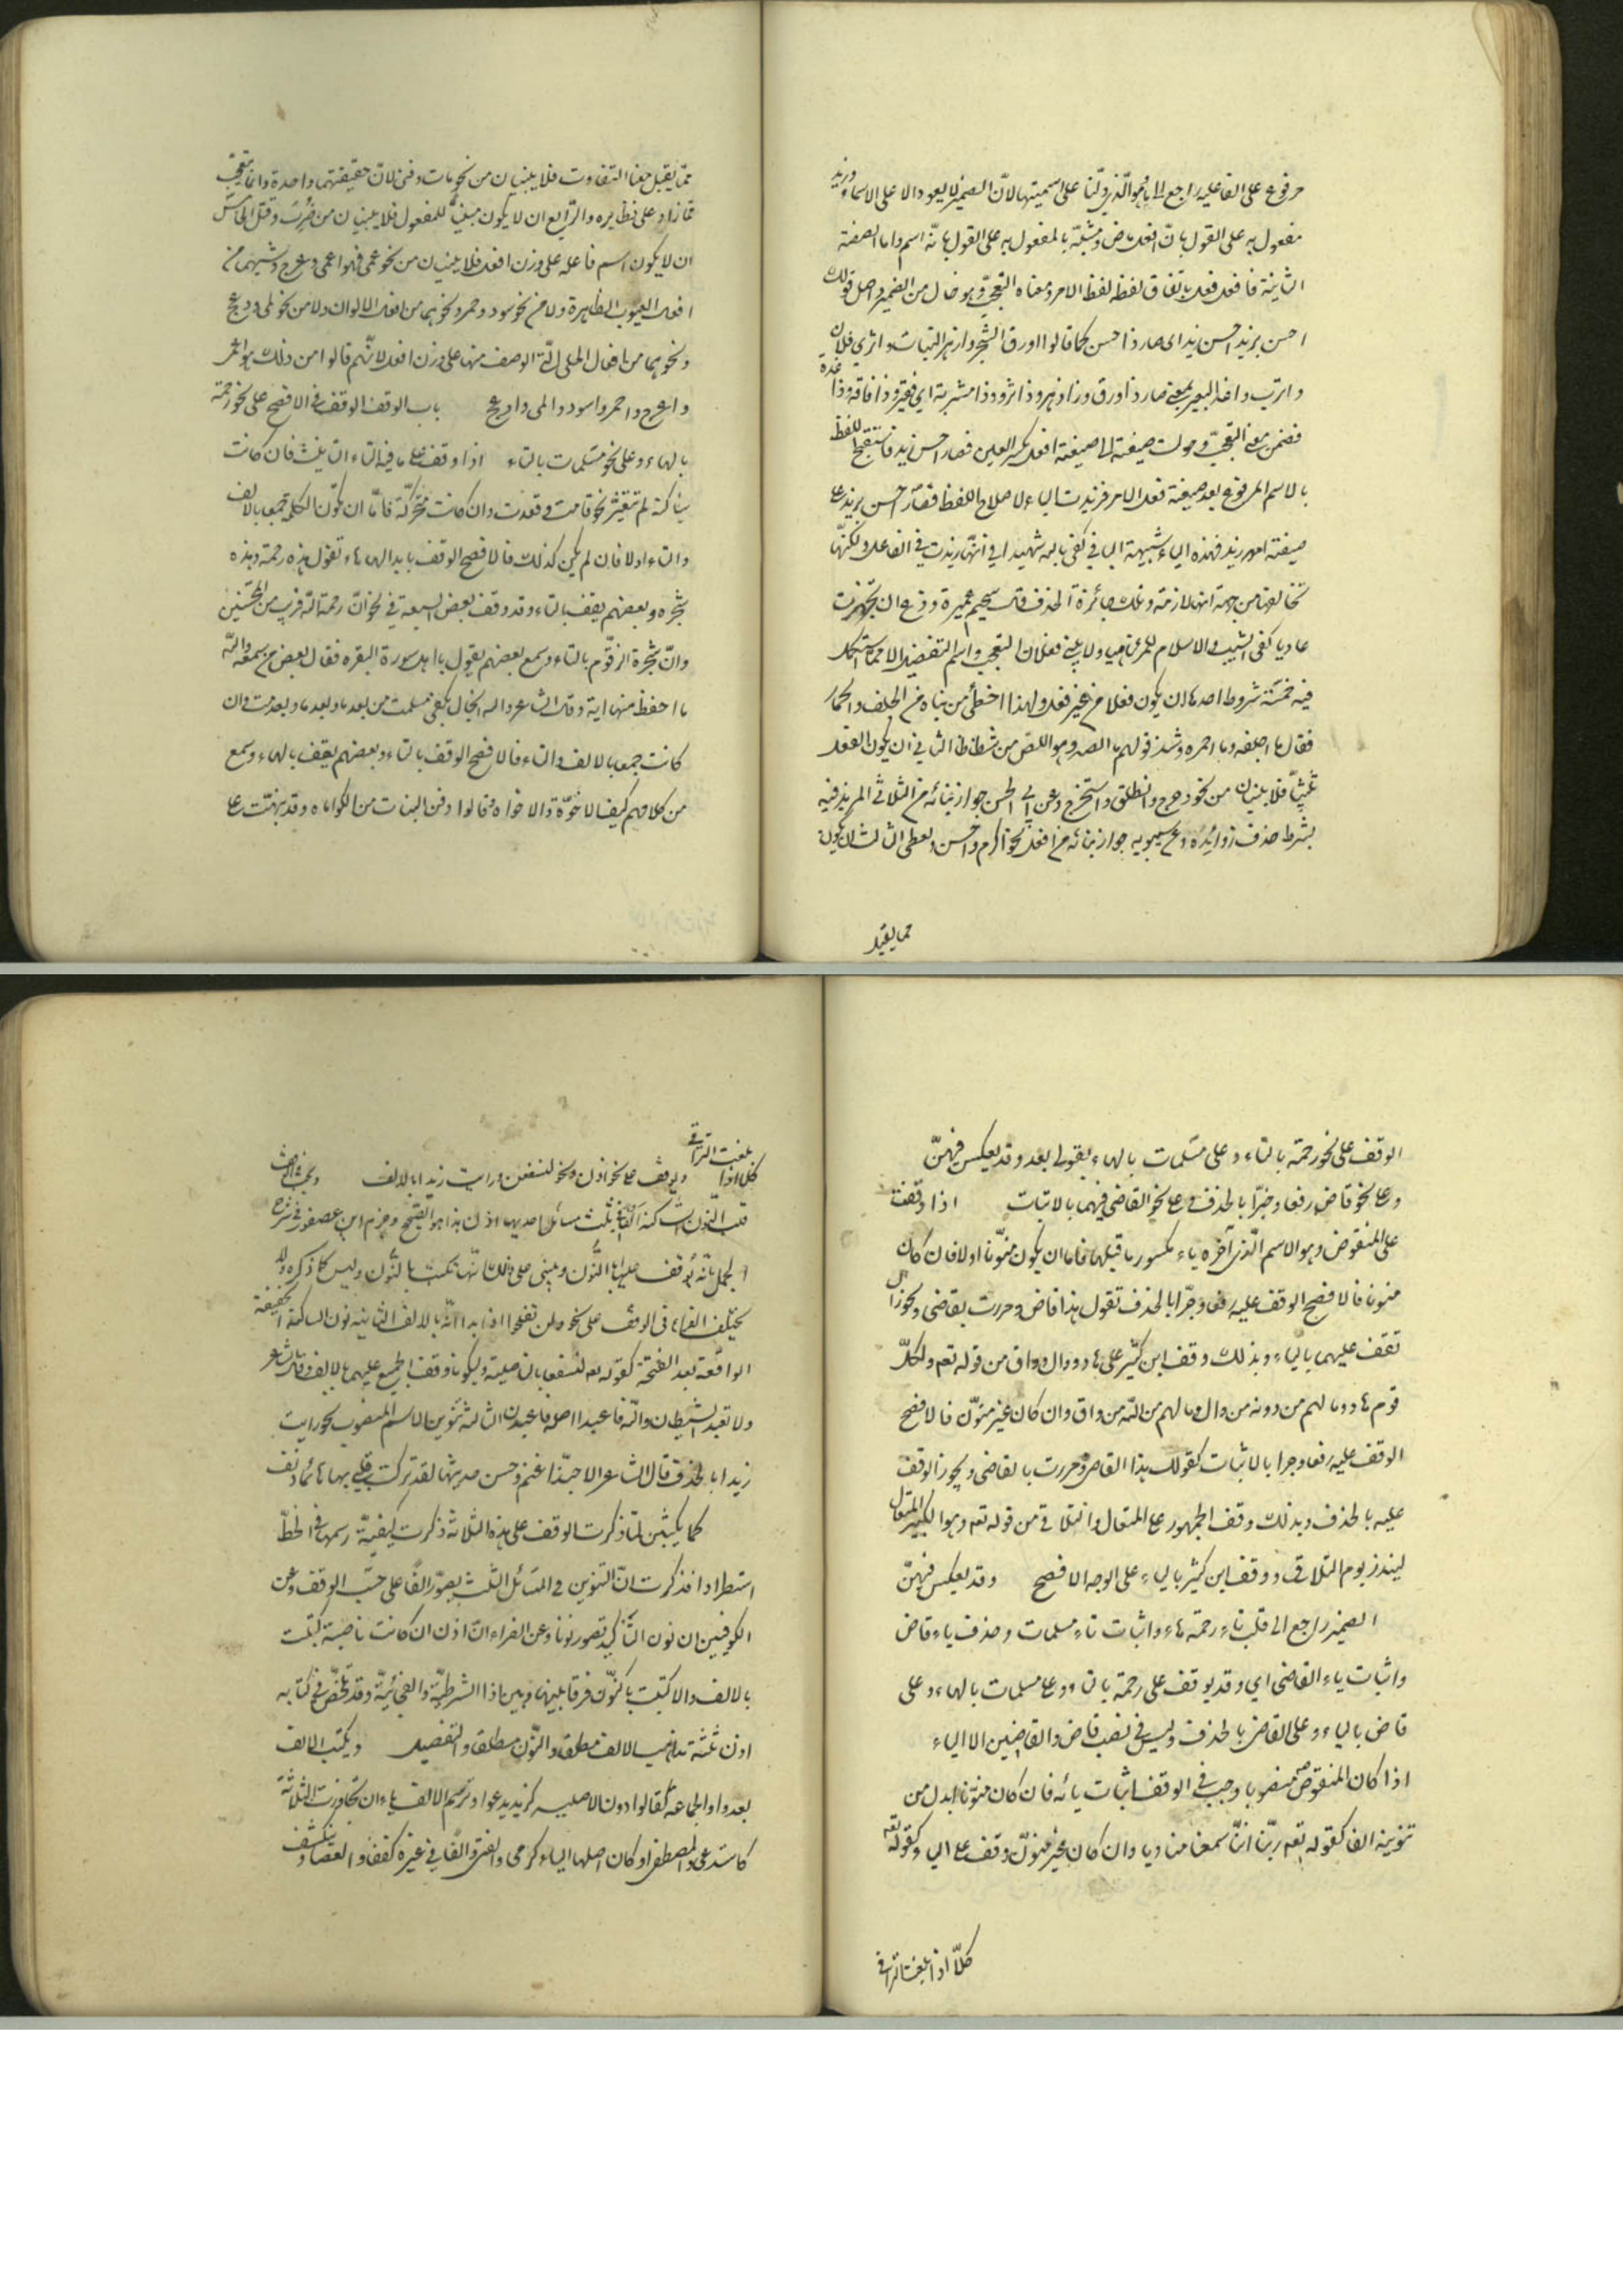 مرفوع على الفاعلية راجع الى ما وهو الذي دلنا على اسميتها لان الضمير لا يعود الا على الاسماء وزيد
مفعول به على القول بان افعل ماض ومشبه بالمفعول به على القول بانه اسم واما الصفة
الثانية فافعل فعل باتفاق لفظه لفظ الامر ومعناه التعجب وهو خال من الضمير واصل قولك
احسن بزيد احسن زيد اى صار ذا حسن كما قالوا اورق الشجر وازهر النبات واثرى فلان
واترب واغد البعير بمعنى صار ذا ورق وذا زهر وذا ثروة وذا متربة اي فقر وفاقة وذا غدة
فضمن معنى التعجب وحولت صيغته الى صيغة افعل بكسر العين فصار احسن زيد فاستقبح اللفظ
بالاسم المرفوع بعد صيغة فعل الامر فزيدت الباء لاصلاح اللفظ فصار احسن بزيد على
صيغة امرر بزيد فهذه الباء شبيهة الباء في كفى بالله شهيدا في انها زيدت في الفاعل ولكنها
تخالفها من جهة انها لازمة وتلك جائزة الحذف قال سحيم عميرة ودع ان تجهزت
غاديا كفى الشيب والاسلام للمرء ناهيا ولا يبنى فعلا التعجب واسم التفضيل الا مما استكمل
فيه خمسة شروط احدها ان يكون فعلا فمن غير فعل ولهذا اخطئ من بناه من الجلف والحمار
فقال ما اجلفه وما احمره وشذ قولهم ما الصه وهو الص من شظاظ الثاني ان يكون الفعل
ثلاثيا فلا يبنيان من نحو دحرج وانطلق واستخرج وعن ابي الحسن جواز بنائه من الثلاثي المزيد فيه
بشرط حذف زوائده وعن سيبويه جواز بنائه من افعل نحو اكرم واحسن واعطى الثالث ان يكون
مما يقبل
مما يقبل معناه التفاوت فلا يبنيان من نحو مات وفنى لان حقيقتهما واحدة وانما يتعجب
مما زاد على نظيره والرابع ان لا يكون مبنيا للمفعول فلا يبنيان من نحو ضرب وقتل الخامس
ان لا يكون اسم فاعله على وزن افعل فلا يبنيان من نحو عمى فهو اعمى وعرج وشبههما من
افعال العيوب الظاهرة ولا من نحو سود وحمر ونحوهما من افعال الالوان ولا من نحو لمى ودعج
ونحوهما من افعال الحلى التي الوصف منها على وزن افعل لانهم قالوا من ذلك هو اعمى
واعرج واحمر واسود والمى وادعج باب الوقف الوقف في الافصح على نحو رحمة
بالهاء وعلى نحو مسلمات بالتاء اذا وقف على ما فيه التاء التانيث فان كانت
ساكنة لم تتغير نحو قامت وقعدت وان كانت متحركة فاما ان تكون الكلمة جمعا بالالف
والتاء اولا فان لم يكن كذلك فالافصح الوقف بابدالها هاء تقول هذه رحمة وهذه
شجره وبعضهم يقف بالتاء وقد وقف بعض السبعة في نحو ان رحمة الله قريب من المحسنين
وان شجرة الزقوم بالتاء وسمع بعضهم يقول يا اهل سورة البقره فقال بعض من سمعه والله
ما احفظ منها اية وقال الشاعر والله انجاك بكفى مسلمت من بعد ما وبعد ما وبعدمت وان
كانت جمعا بالالف والتاء فالافصح الوقف بالتاء وبعضهم يقف بالهاء وسمع
من كلامهم كيف الاخوة والاخواه وقالوا دفن البنات من المكرماه وقد نبهت على
الوقف على نحو رحمة بالتاء وعلى مسلمات بالهاء بقولى بعد وقد يعكس فيهن
وعلى نحو قاض رفعا وجرا بالحذف وعلى نحو القاضي فيهما بالاثبات اذا وقفت
على المنقوض وهو الاسم الذي آخره ياء مكسور ما قبلها فاما ان يكون منونا اولا فان كان
منونا فالافصح الوقف عليه رفعا وجرا بالحذف تقول هذا قاض ومررت بقاضى ويجوز ان
تقف عليهما بالياء وبذلك وقف ابن كثير على هاد ووال وواق من قوله تعالى ولكل
قوم هاد وما لهم من دونه من وال وما لهم من الله من واق وان كان غير منون فالافصح
الوقف عليه رفعا وجرا بالاثبات كقولك هذا القاضى ومررت بالقاضى ويجوز الوقف
عليه بالحذف وبذلك وقف الجمهور على المتعال والتلاق من قوله تعم وهو الكبير المتعال
لينذر يوم التلاق ووقف ابن كثير بالياء على الوجه الافصح وقد يعكس فيهن
الضمير راجع الى قلب تاء رحمة هاء واثبات تاء مسلمات وحذف ياء قاض
واثبات ياء القاضى اي وقد يوقف على رحمة بالتاء وعلى مسلمات بالهاء وعلى
قاض بالياء وعلى القاض بالحذف وليس في نصب قاض والقاضين الا الياء
اذا كان المنقوص منصوبا وجب في الوقف اثبات يائه فان كان منونا ابدل من
تنوينه الف كقوله تعم ربنا اننا سمعنا مناديا وان كان غير منون وقف على الياء كقوله تعه
كلا اذا بلغت التراقى
كلا اذا بلغت التراقي ويوقف على نحو اذن ونحو لنسفعن ورايت زيدا بالالف ويجب في الوقف
قلب النون الساكنة الفا في ثلث مسائل احديها اذن هذا هو الصحيح وجزم ابن عصفور في شرح
الجمل بانه يوقف عليها بالنون وبنى على ذلك انها تكتب بالنون وليس كما ذكره ولا
تختلف القراء في الوقف على نحو ولن تفلحوا اذا ابدا انه بالالف الثانيه نون الساكنة الخفيفة
الواقعة بعد الفتحة كقوله تعم لنسفعا بالناصية وليكونا وقف الجميع عليهما بالالف وقال الشاعر
ولا تعبد الشيطان والله فاعبدا اصله فاعبدن الثالثة تنوين الاسم المنصوب نحو رايت
زيدا بالحذف قال الشاعر الا حبذا غنم وحسن حديثها لقد تركت قلبي بها هائما دنف
كما يكتبن لما ذكرت الوقف على هذه الثلاثة ذكرت كيفية رسمها في الخط
استطرادا فذكرت ان التنوين في المسائل الثلث يصور الفا على حسب الوقف وعن
الكوفيين ان نون التاكيد تصور نونا وعن الفراء ان اذن ان كانت ناصبة كتبت
بالالف والا كتبت بالنون فرقا بينها وبين اذا الشرطية والفجائية وقد تلخص في كتابه
اذن ثلثة مذاهب الالف مطلقا والنون مطلقا والتفصيل ويكتب الالف
بعد واو الجماعة كقالوا دون الاصلية كزيد يدعوا وترسم الالف ياء ان تجاوزت الثلاثة
كاستدعى والمصطفى او كان اصلها الياء كرمى والفتى والفا في غيره كقفا والعصا وينكشف